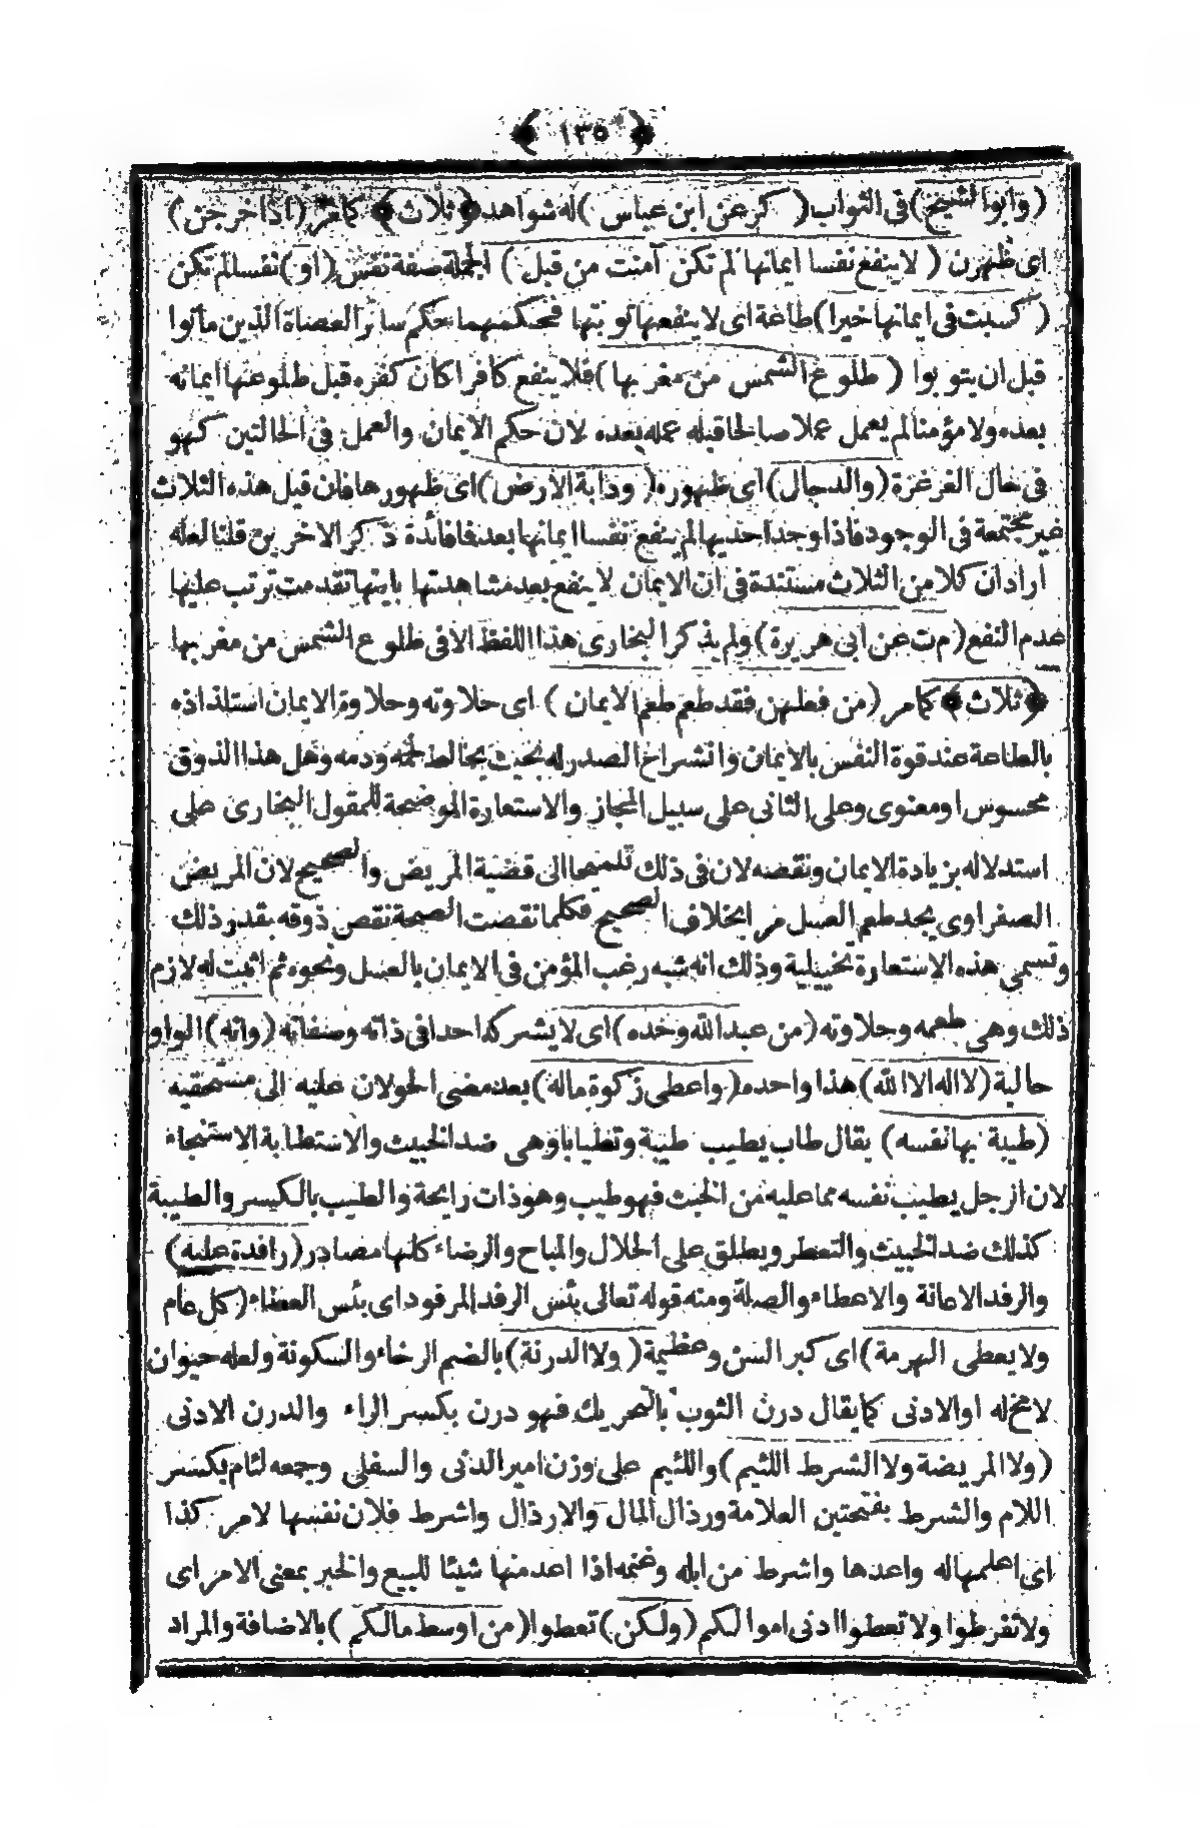 ﴿ ١٣٥ ﴾
(وابوا الشيخ) فى الثواب ( كر عن ابن عباس ) له شواهد ﴿ ثلاث ﴾ كامر (اذا خرجن)
اى ظهرن ( لا ينفع نفسا ايمانها لم تكن آمنت من قبل ) الجملة صفة نفس (او) نفسا لم تكن
( كسبت فى ايمانها خيرا) طاعة اى لا ينفعها توبتها فحكمهما حكم سائر العصاة الذين ماتوا
قبل ان يتوبوا ( طلوع الشمس من مغربها ) فلا ينفع كافرا كان كفره قبل طلوعها ايمانه
بعده ولا مؤمنا لم يعمل عملا صالحا قبله عمله بعده لان حكم الايمان والعمل فى الحالتين كهو
فى حال الغرغرة (والدجال) اى ظهوره ( ودابة الارض) اى ظهورها فان قبل هذه الثلاث
غير مجتمعة فى الوجود فاذا وجد احديها لم ينفع نفسا ايمانها بعد فما فائدة ذكر الاخرين قلنا لعله
اراد ان كلا من الثلاث مستندة فى ان الايمان لا ينفع بعد مشاهدتها بايتها تقدمت ترتب عليها
عدم النفع (م ت عن ابى هريرة) ولم يذكر البخارى هذا اللفظ الا فى طلوع الشمس من مغربها
﴿ ثلاث ﴾ كامر (من فعلهن فقد طعم طعم الايمان ) اى حلاوته وحلاوة الايمان استلذاذه
بالطاعة عند قوة النفس بالايمان وانشراح الصدر له بحيث يخالط لحمه ودمه وهل هذا الذوق
محسوس او معنوى وعلى الثانى على سبيل المجاز والاستعارة الموضحة للمقول البخارى على
استدلاله بزيادة الايمان ونقصه لان فى ذلك تلميحا الى قضية المريض والصحيح لان المريض
الصفراوى يجد طعم العسل مرا بخلاف الصحيح فكلما نقصت الصحة نقص ذوقه بقدر ذلك
وتسمى هذه الاستعارة تخييلية وذلك انه شبه رغب المؤمن فى الايمان بالعسل ونحوه ثم اثبت له لازم
ذلك وهى طعمه وحلاوته (من عبد الله وحده) اى لا يشرك احدا فى ذاته وصفاته (وانه) الواو
حالية (لا اله الا الله) هذا واحده ( واعطى زكوة ماله) بعد مضى الحولان عليه الى مستحقيه
(طيبة بها نفسه) يقال طاب يطيب طيبة وتطيابا وهى ضد الخبيث والاستطابة الاستنجاء
لان الرجل يطيب نفسه مما عليه من الخبث فهو طيب وهو ذات رايحة والطيب بالكسر والطيبة
كذلك ضد الخبيث والتعطر ويطلق على الحلال والمباح والرضاء كلها مصادر (رافدة عليه)
والرفد الاعانة والاعطاء والصلة ومنه قوله تعالى بئس الرفد المرفود اى بئس العطاء (كل عام
ولا يعطى الهرمة) اى كبر السن وعظيمة ( ولا الدرنة) بالضم الرخاء والسكونة ولعله حيوان
لا مخ له او الادنى كما يقال درن الثوب بالتحريك فهو درن بكسر الراء والدرن الادنى
(ولا المريضة ولا الشرط اللئيم) واللئيم على وزن امير الدنى والسفلى وجمعه لئام بكسر
اللام والشرط بفتحتين العلامة ورذال المال والارذال واشرط فلان نفسها لامر كذا
اى اعلمها له واعدها واشرط من ابله وغنمه اذا اعد منها شيئا للبيع والخبر بمعنى الامر اى
ولا تفرطوا ولا تعطوا ادنى اموالكم (ولكن) تعطوا (من اوسط مالكم ) بالاضافة والمراد